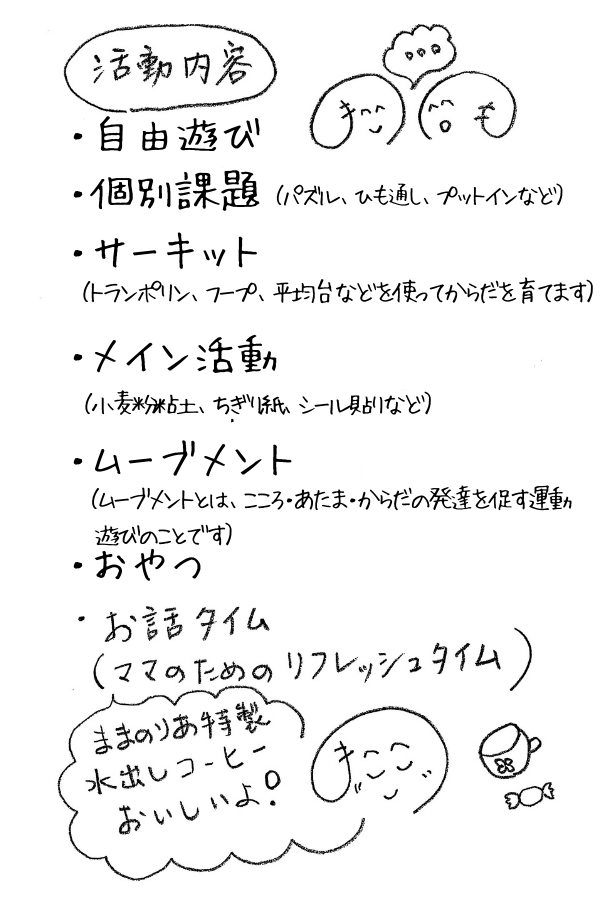 活動内容
・自由遊び
・個別課題(パズル、ひも通し、プットインなど)
・サーキット
(トランポリン、フープ、平均台などを使ってからだを育てます)
・メイン活動
(小麦粉粘土、ちぎり紙、シール貼りなど)
・ムーブメント
(ムーブメントとは、こころ・あたま・からだの発達を促す運動
遊びのことです)
・おやつ
・お話タイム
(ママのためのリフレッシュタイム)
ままのりあ特製
水出しコーヒー
おいしいよ!